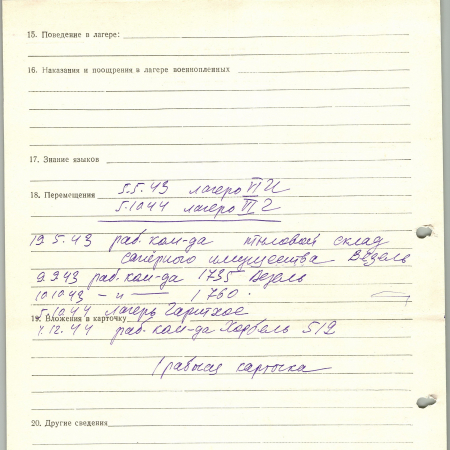 15. Поведение в лагере:
16. Наказания и поощрения в лагере военнопленных
17. Знание языков
18. Перемещения 5.5.43 лагерь VI
5.10.44 лагерь VI
19.5.43 раб. ком-да тыловой склад
саперного имущества Везель
9.9.43 раб. ком-да 1735 Везель
10.10.43 — " — 1760.
5.10.44 лагерь
19. Вложения в карточку
4.12.44 раб. ком-да 512
1 рабочая карточка
20. Другие сведения